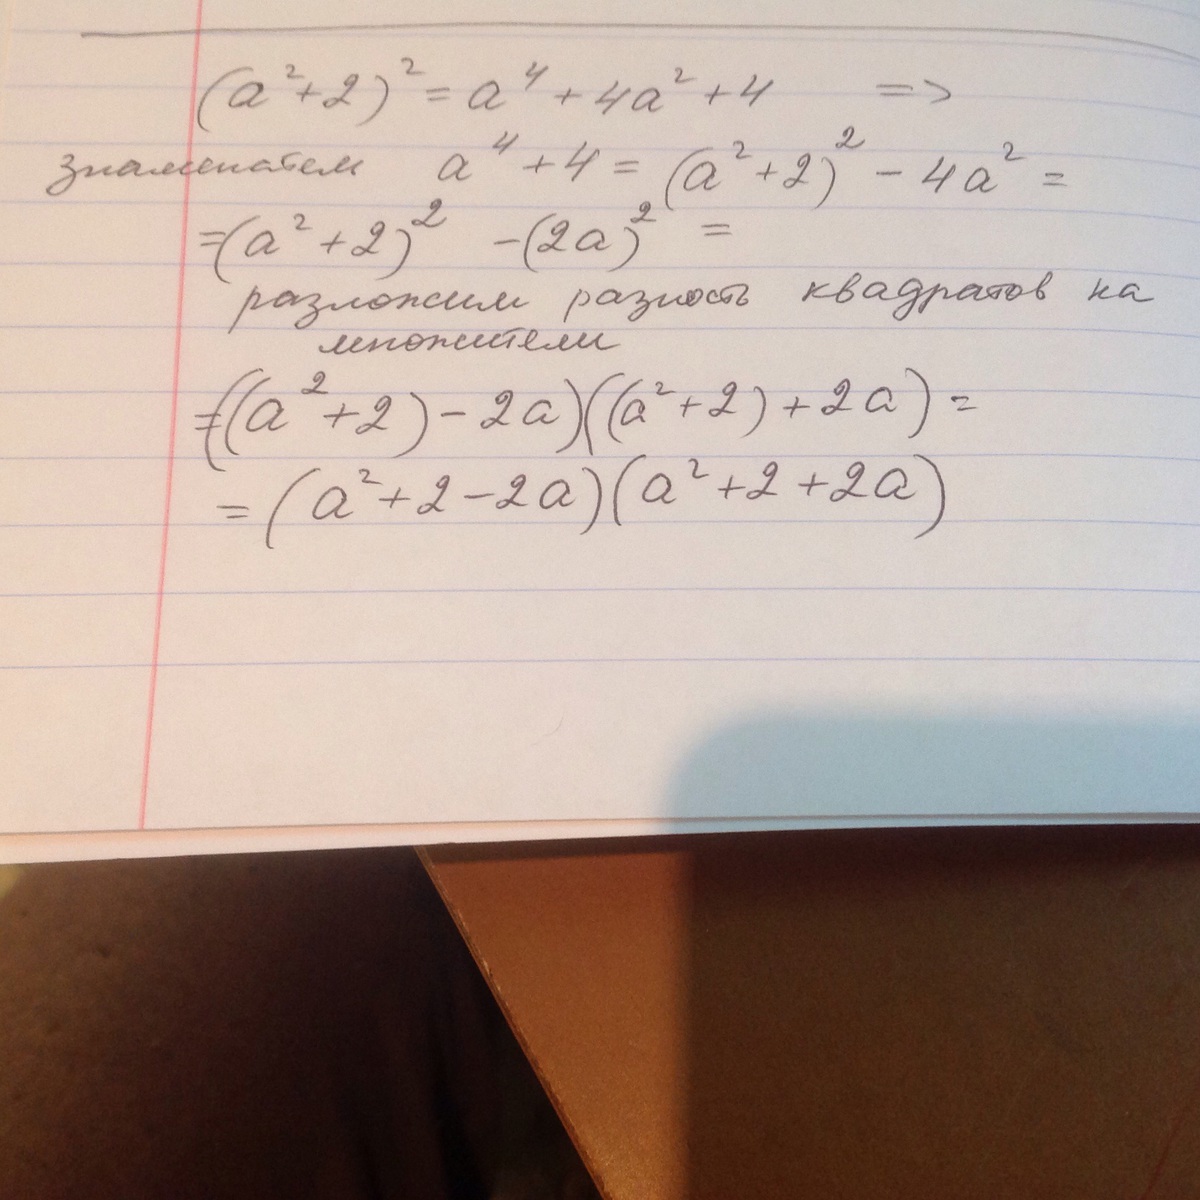 (a²+2)² = a⁴ + 4a² + 4 =>
знаменатель a⁴ + 4 = (a² + 2)² - 4a² =
= (a² + 2)² - (2a)² =
разложим разность квадратов на
множители
= ((a² + 2) - 2a)((a² + 2) + 2a) =
= (a² + 2 - 2a)(a² + 2 + 2a)